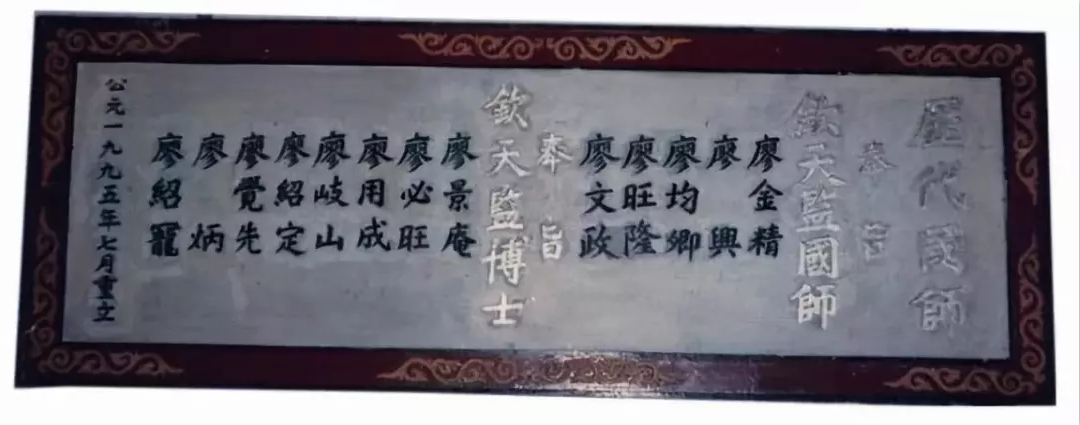 歷代國師
奉旨
欽天監國師
廖金精
廖興
廖均卿
廖旺隆
廖文政
奉旨
欽天監博士
廖景庵
廖必旺
廖用成
廖岐山
廖紹定
廖覺先
廖炳
廖紹寵
公元一九九五年七月重立